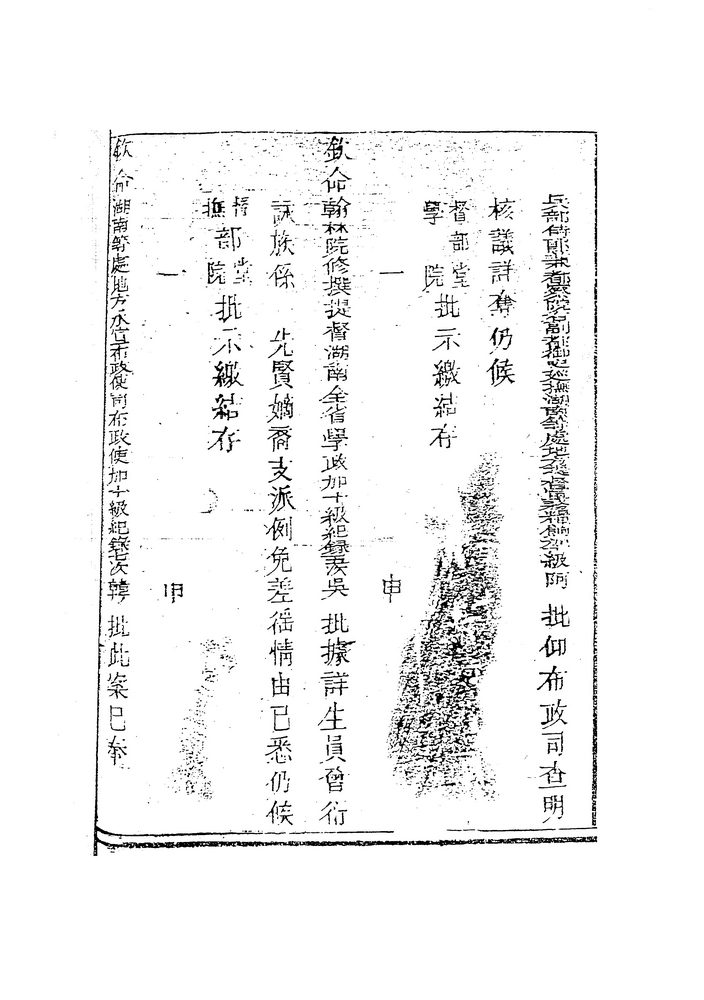 兵部侍郎兼都察院右副都御史巡撫湖南等處地方提督軍務兼理糧餉加級阿 批仰布政司查明
核議詳奪仍候
督部堂
學院 批示繳結存
一 申
欽命翰林院修撰提督湖南全省學政加十級紀錄 次吳 批據詳生員曾衍
詠族係 先賢嫡裔支派例免差徭情由已悉仍候
督部堂
撫部院批示繳結存
一 申
欽命湖南等處地方承宣布政使司布政使加十級紀錄七次韓 批此案已奉